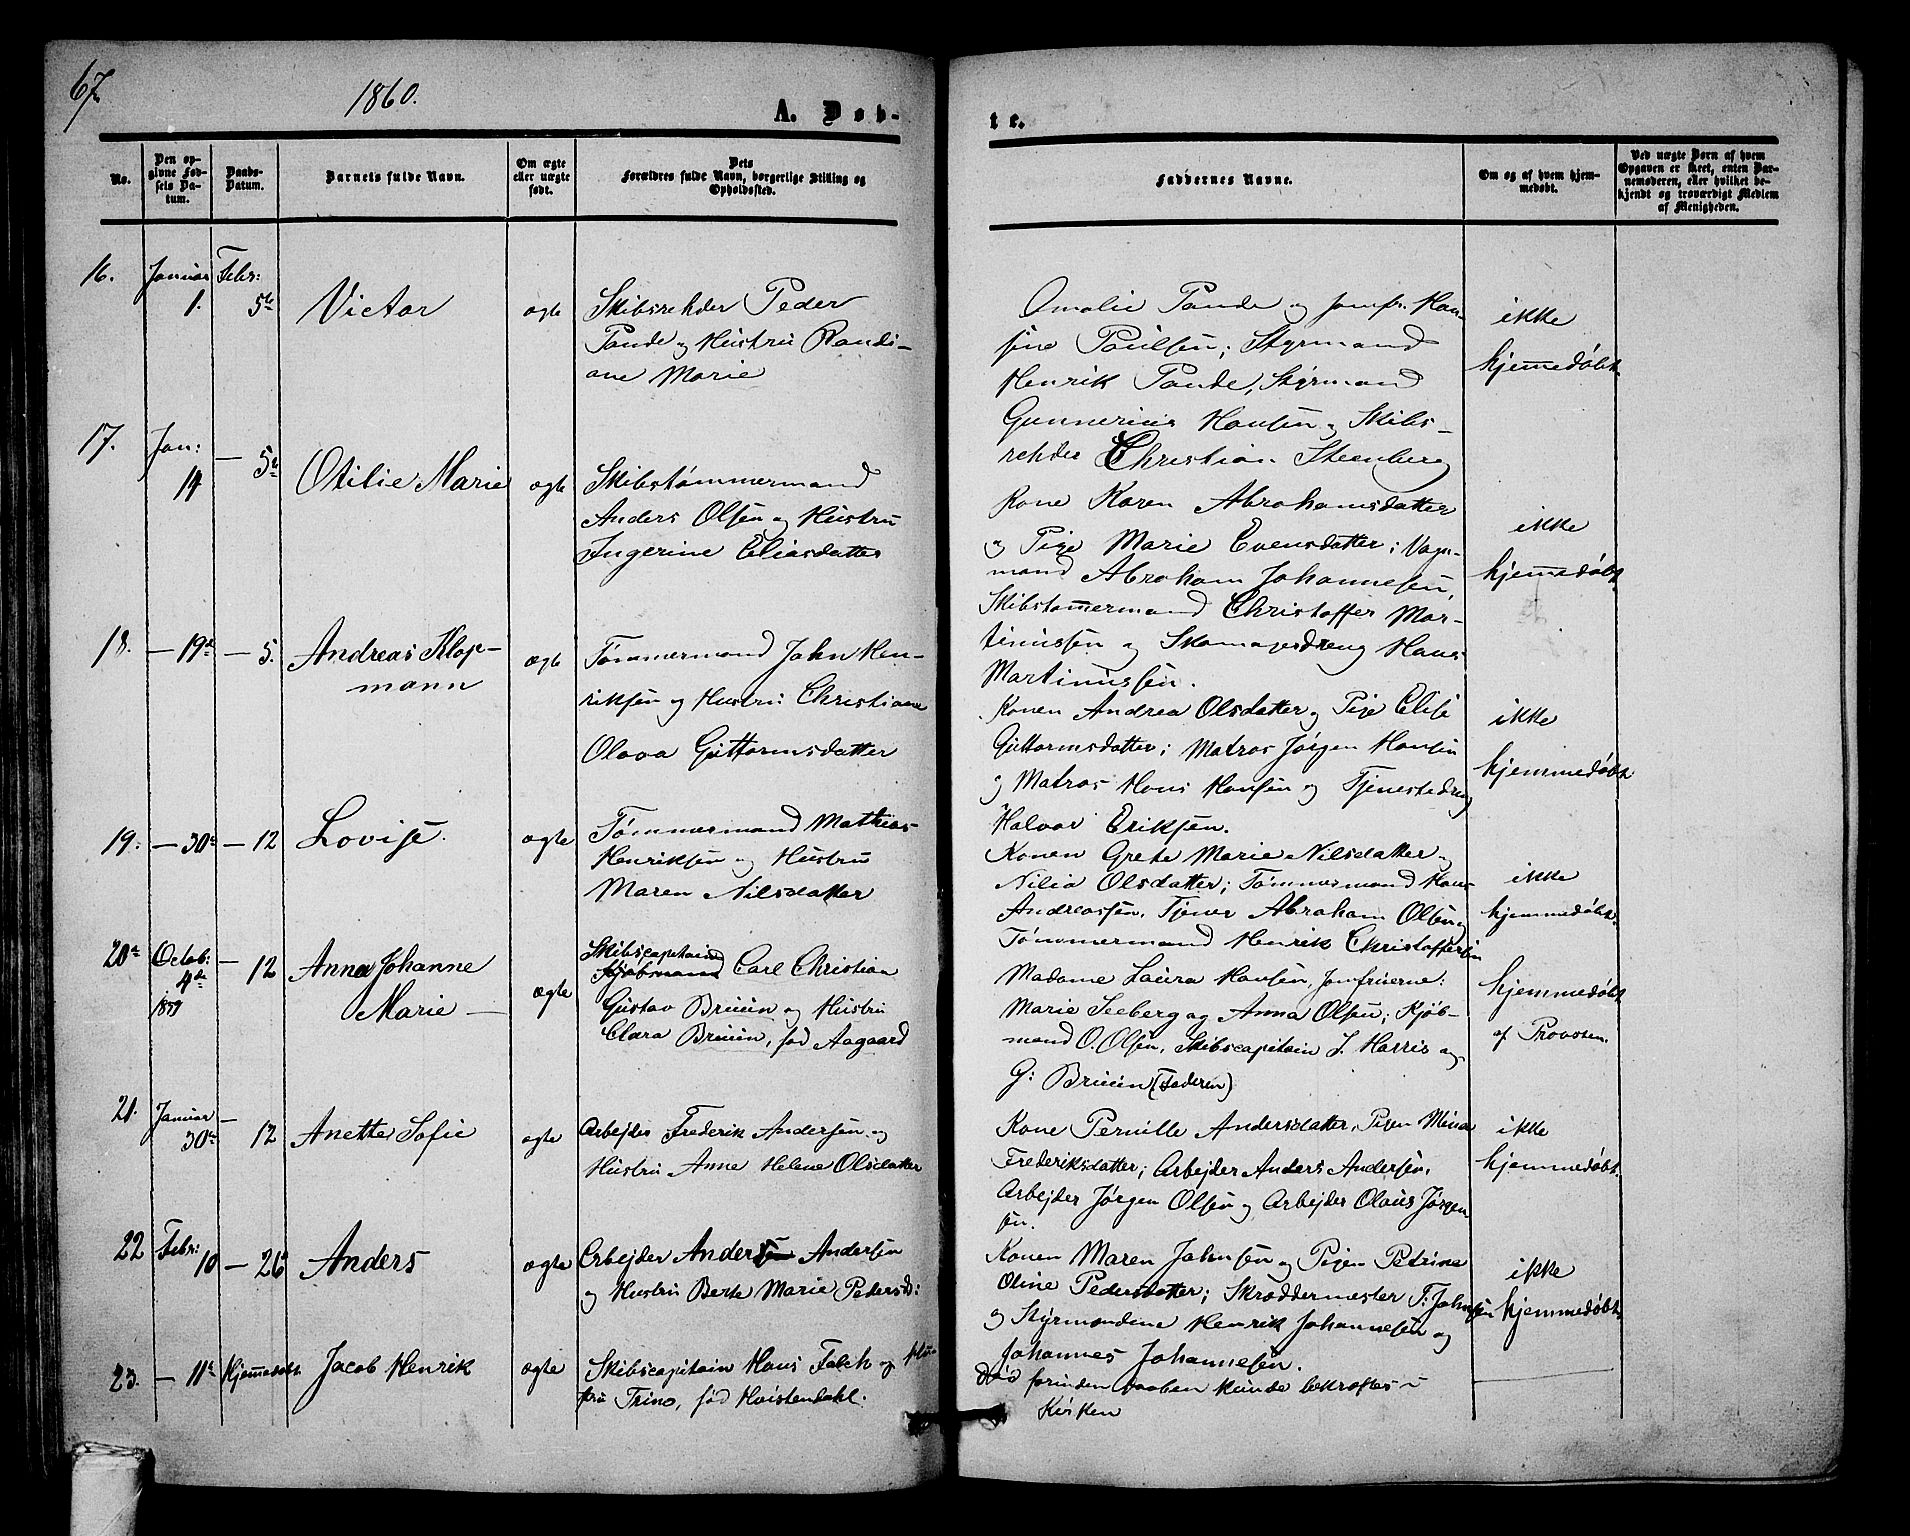 67
1860.
A. Døb-
te.
No.
Den op-
givne Fød-
sels Da-
tum.
Daabs-
Datum.
Barnets fulde Navn.
Om ægte
eller uægte
født.
Dets
Forældres fulde Navn, borgerlige Stilling og
Opholdssted.
Faddernes Navne.
Om og af hvem hjem-
medøbt.
Ved uægte Børn af hvem
Opgaven er skeet, enten Bar-
nemoderen, eller hvilket be-
kjendt og troværdigt Medlem
af Menigheden.
16.
Januar
1.
Febr:
5te
Victor
ægte
Skibsrehder Peder
Pande og Hustru Randi-
ane Marie
Omalie Pande og Jomfr. Han-
sine Paulsen; Styrmand
Henrik Pande, Styrmand
Gunnerius Hansen og Skibs-
rehder Christian Steenberg
ikke
hjemmedøbt.
17.
Jan:
14
— 5te
Otilie Marie
ægte
Skibstømmermand
Anders Olsen og Hustru
Ingerine Eliasdatter
Kone Karen Abrahamsdatter
og Pige Marie Evensdatter; Vogn-
mand Abraham Johannesen,
Skibstømmermand Christoffer Mar-
tinussen og Skomagerdreng Hans
Martinussen.
ikke
hjemmedøbt.
18.
— 19de
— 5.
Andreas Klop-
mann
ægte
Tømmermand John Hen-
riksen og Hustru Christiane
Olava Guttormsdatter
Konen Andrea Olsdatter og Pige Elise
Guttormsdatter; Matros Jørgen Hansen
og Matros Hans Hansen og Tjenestedreng
Halvor Eriksen.
ikke
hjemmedøbt
19.
— 30te
— 12
Lovise.
ægte
Tømmermand Mathias
Henriksen og Hustru
Maren Nilsdatter
Konen Grete Marie Nilsdatter og
Nilia Olsdatter; Tømmermand Hans
Andreassen, Tjener Abraham Olsen og
Tømmermand Henrik Christoffersen
ikke
hjemmedøbt.
20de
Octob:
4de
1859
— 12
Anna Johanne
Marie —
ægte
Skibscapitain
Kjøbmand Carl Christian
Gustav Bruun og Hustru
Clara Bruun, fød Aagaard
Madame Laura Hansen, Jomfruerne:
Marie Seeberg og Anna Olsen; Kjøb-
mand O. Olsen, Skibscapitain J. Harris og
G: Bruun (Faderen)
hjemmedøbt
af Provsten.
21.
Januar
30te
— 12
Anette Sofie
ægte
Arbejder Frederik Andersen og
Hustru Anne Helene Olsdatter
Kone Pernille Andersdatter, Pigen Mina
Frederiksdatter; Arbejder Anders Andersen,
Arbejder Jørgen Olsen og Arbejder Olaus Jørgen-
sen.
ikke
hjemmedøbt.
22
Febr:
10
— 26de
Anders
ægte
Arbejder Anders Andersen
og Hustru Berte Marie Pedersd:
Konen Maren Johnsen og Pigen Petrine
Oline Pedersdatter; Skræddermester T: Johnsen
og Styrmændene Henrik Johannesen og
Johannes Johannesen.
ikke
hjemmedøbt.
23.
— 11te
Hjemmedøbt
Jacob Henrik
ægte
Skibscapitain Hans Falch og Hu-
stru Trine, fød Hvistendahl.
Død forinden Daaben kunde bekræftes i
Kirken